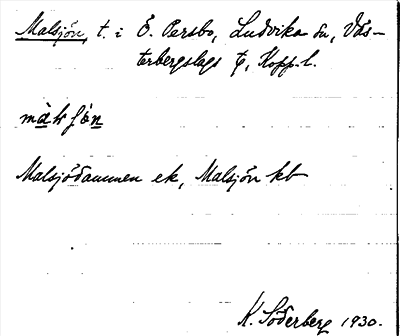 Malsjön, t. i Ö. Persbo, Ludvika sn, Väs-
terbergslags t, Kopp. l.
Malsjödammen ek, Malsjön kb
K. Söderberg 1930.